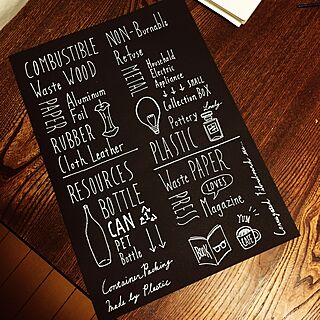 COMBUSTIBLE
Waste WOOD
PAPER
Aluminum
Foil
RUBBER
Cloth Leather
NON-Burnable
Refuse
METAL
Household
Electric
Appliance
↓↓↓ SMALL
Collection BOX
Pottery
PLASTIC
RESOURCES
BOTTLE
CAN
PET
Bottle ↓↓
Container Packing
Made by Plastic
Waste PAPER
PRESS
LOVES
Magazine
BOOK
CAFE